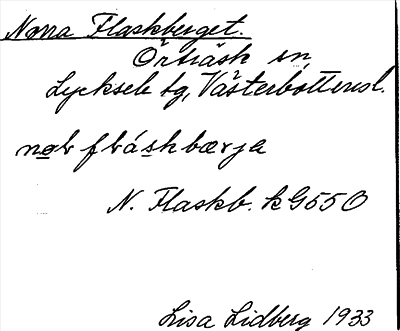 Norra Flaskberget.
Örträsk sn
Lycksele tg, Västerbottensl.
N. Flaskb. k G550
Lisa Lidberg 1933